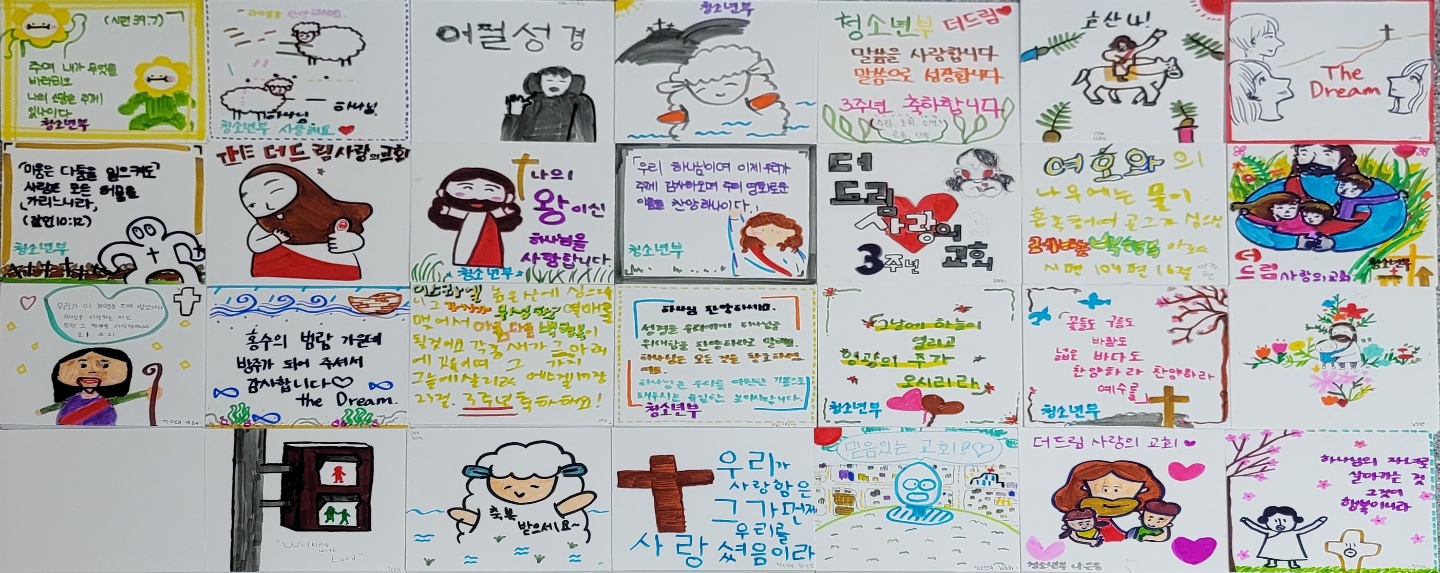 (시편 39:7)
주여 내가 무엇을
바라리요
나의 소망은 주께
있나이다
청소년부
하나님
하나님
청소년부 사랑해요
어쩔성경
청소년부
청소년부 더드림
말씀을 사랑합니다
말씀으로 성경합니다
3주년 축하합니다
호산나!
The
Dream
"미움은 다툼을 일으켜도
사랑은 모든 허물을
가리느니라,
(잠언10:12)
청소년부
더드림사랑의교회
나의
왕이신
하나님을
사랑합니다
청소년부
「우리 하나님이여 이제 우리가
주께 감사하오며 주의 영화로운
이름을 찬양하나이다.」
청소년부
더
드림
사랑의
3주년 교회
여호와의
나무에는 물이
흡족함이여 곧 그가 심으신
레바논 백향목
시편 104편 16절
더
드림 사랑의교회
청소년부
우리가 이 계명을 주께 받았나니
하나님을 사랑하는 자는
또한 그 형제를 사랑할지니라
홍수의 범람 가운데
방주가 되어 주셔서
감사합니다♡
the Dream.
이스라엘 높은 산에 심으리
열매를
맺어서 아름다운 백향목이
될것이요 각종 새가 그 아래
에 깃들이며 그 가지
그늘에 살리라 에스겔 17장
23절. 3주년 축하해요!
하나님 찬양하세요.
성경은 우리에게 하나님의
위대함을 찬양하라고 말해요
하나님은 모든 것을 창조하셨
어요.
청소년부
그날에 하늘이
열리고
영광의 주가
오시리라
청소년부
꽃들도 구름도
바람도
넓은 바다도
찬양하라 찬양하라
예수를
청소년부
"Walking
with
Lord"
축복
받으세요~
우리가
사랑함은
그가 먼저
우리를
사랑 셨음이라
믿음있는 교회!♡
더드림 사랑의 교회
청소년부 나은율
하나님의 자녀로
살아가는 것
그것이
행복이니라